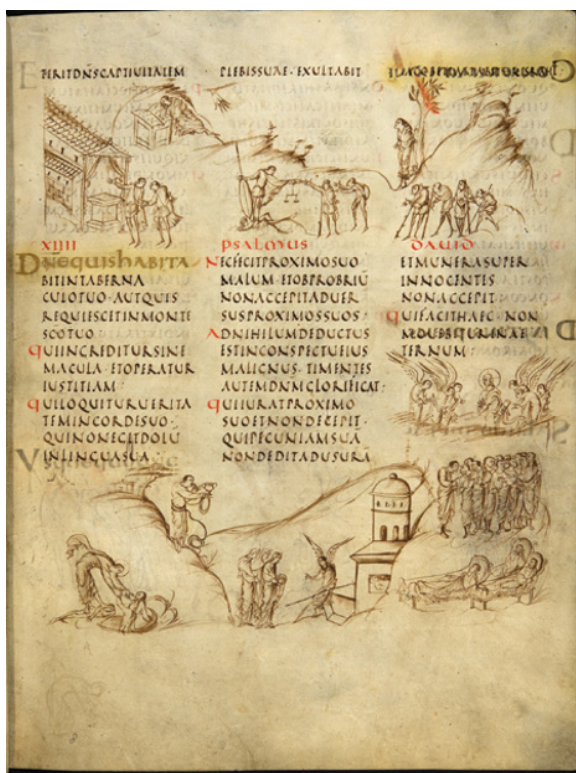 TERITDN̄SCAPTIUITATEM PLEBISSUAE·EXULTABIT
XIIII PSALMUS DAUID
DN̄EQUISHABITA
BITINTABERNA
CULOTUO·AUTQUIS
REQUIESCETINMONTE
SCOTUO
QUIINGREDITURSINE
MACULA·ETOPERATUR
IUSTITIAM:
QUILOQUITURUERITA
TEMINCORDESUO·
QUINONEGITDOLŪ
INLINGUASUA·
NECFECITPROXIMOSUO
MALUM·ETOBPROBRIŪ
NONACCEPITADUER
SUSPROXIMOSSUOS:
ADNIHILUMDEDUCTUS
ESTINCONSPECTUEIUS
MALIGNUS·TIMENTES
AUTEMDNMGLORIFICAT:
QUIIURATPROXIMO
SUOETNONDECEPIT·
QUIPECUNIAMSUĀ
NONDEDITADUSURĀ
ETMUNERASUPER
INNOCENTES
NONACCEPIT·
QUIFACITHAEC·NON
MOUEBITURINAE
TERNUM: